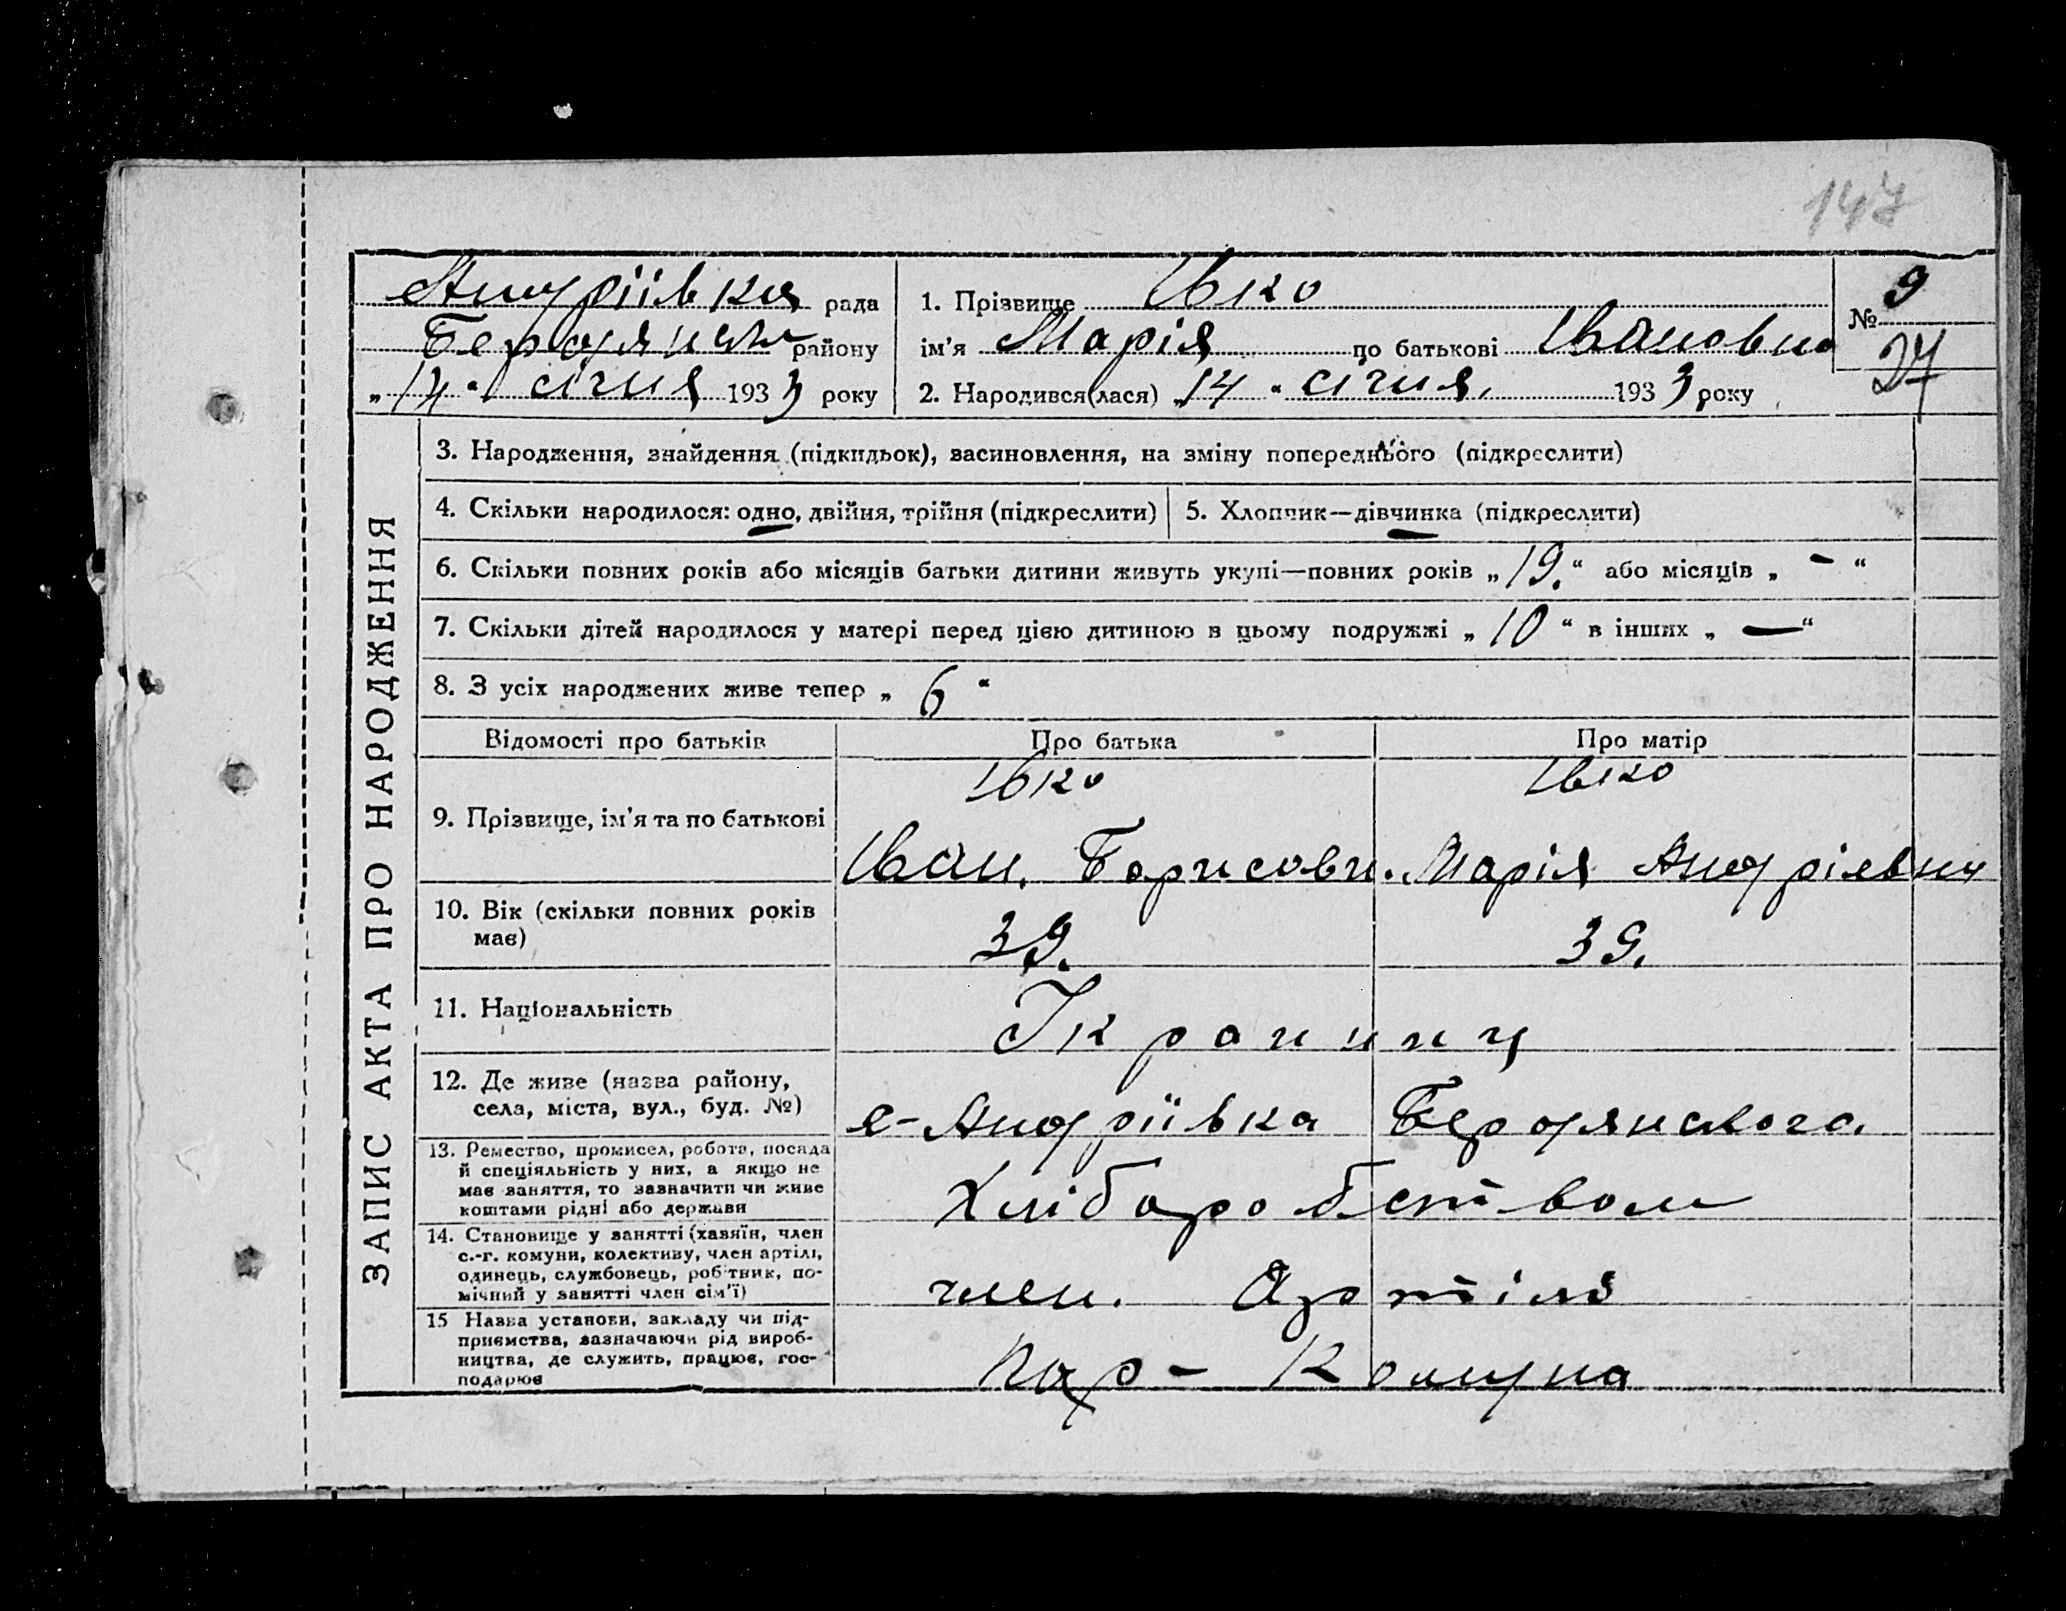 147
Андріївка рада
Бердянськ району
„14“ січня 1933 року
1. Прізвище Івко
ім’я Марія по батькові Івановна
2. Народився(лася) „14“ січня, 1933 року
№ 9
27
ЗАПИС АКТА ПРО НАРОДЖЕННЯ
3. Народження, знайдення (підкидьок), васиновлення, на зміну попереднього (підкреслити)
4. Скільки народилося: одно, двійня, трійня (підкреслити)
5. Хлопчик—дівчинка (підкреслити)
6. Скільки повних років або місяців батьки дитини живуть укупі—повних років „19.“ або місяців „-“
7. Скільки дітей народилося у матері перед цією дитиною в цьому подружжі „10“ в інших „—“
8. З усіх народжених живе тепер „6“
Відомості про батьків
Про батька
Про матір
9. Прізвище, ім’я та по батькові
Івко
Іван. Борисови.
Івко
Марія Андріевна
10. Вік (скільки повних років
має)
39.
39.
11. Національність
Україниц
12. Де живе (назва району,
села, міста, вул., буд. №)
с-Андріївка Бердянского.
13. Ремество, промисел, робота, посада
й спеціяльність у них, а якщо не
має заняття, то зазначити чи живе
коштами рідні або держави
Хліборобством
14. Становище у занятті (хазяїн, член
с.-г. комуни, колективу, член артілі,
одинець, службовець, робітник, по-
мічний у занятті член сім’ї)
член. Артілі
15 Назва установи, закладу чи під-
приємства, зазначаючи рід вироб-
ництва, де служить, працює, гос-
подарює
Пар-Комуна